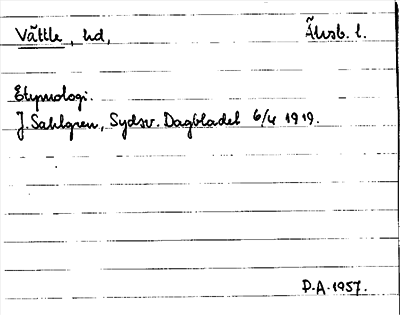 Vättle, hd, Älvsb. l.
Etymologi.
J. Sahlgren, Sydsv. Dagbladet 6/4 1919.
P.A. 1957.